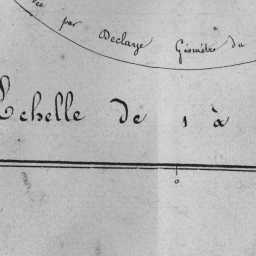 par Declaye Géomètre du
Echelle de 1 à
0